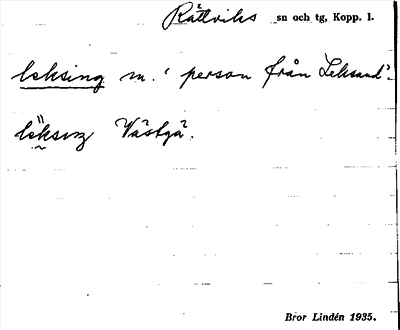 Rättviks sn och tg, Kopp. l.
leksing m. 'person från Leksand'.
Västgä.
Bror Lindén 1935.